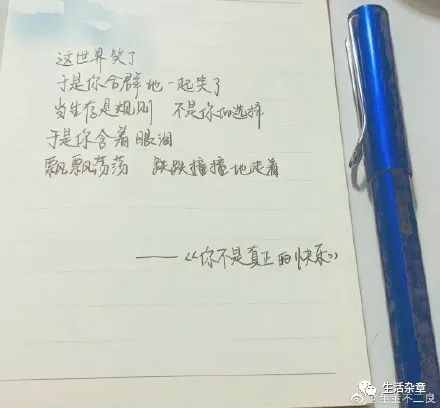 这世界笑了
于是你合群地一起笑了
当生存是规则 不是你的选择
于是你含着眼泪
飘飘荡荡 跌跌撞撞地走着
——《你不是真正的快乐》
生活杂章
@宝宝不二良